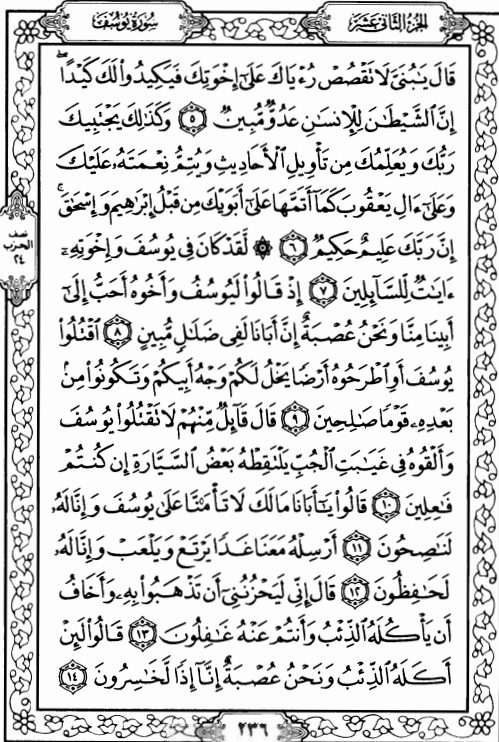 سُورَةُ يُوسُفَ
الجُزْءُ الثَّانِي عَشَرَ
قَالَ يَٰبُنَيَّ لَا تَقۡصُصۡ رُءۡيَاكَ عَلَىٰٓ إِخۡوَتِكَ فَيَكِيدُواْ لَكَ كَيۡدًاۖ
إِنَّ ٱلشَّيۡطَٰنَ لِلۡإِنسَٰنِ عَدُوّٞ مُّبِينٞ ٥ وَكَذَٰلِكَ يَجۡتَبِيكَ
رَبُّكَ وَيُعَلِّمُكَ مِن تَأۡوِيلِ ٱلۡأَحَادِيثِ وَيُتِمُّ نِعۡمَتَهُۥ عَلَيۡكَ
وَعَلَىٰٓ ءَالِ يَعۡقُوبَ كَمَآ أَتَمَّهَا عَلَىٰٓ أَبَوَيۡكَ مِن قَبۡلُ إِبۡرَٰهِيمَ وَإِسۡحَٰقَۚ
إِنَّ رَبَّكَ عَلِيمٌ حَكِيمٞ ٦ ۞ لَّقَدۡ كَانَ فِي يُوسُفَ وَإِخۡوَتِهِۦٓ
ءَايَٰتٞ لِّلسَّآئِلِينَ ٧ إِذۡ قَالُواْ لَيُوسُفُ وَأَخُوهُ أَحَبُّ إِلَىٰٓ
أَبِينَا مِنَّا وَنَحۡنُ عُصۡبَةٌ إِنَّ أَبَانَا لَفِي ضَلَٰلٖ مُّبِينٍ ٨ ٱقۡتُلُواْ
يُوسُفَ أَوِ ٱطۡرَحُوهُ أَرۡضٗا يَخۡلُ لَكُمۡ وَجۡهُ أَبِيكُمۡ وَتَكُونُواْ مِنۢ
بَعۡدِهِۦ قَوۡمٗا صَٰلِحِينَ ٩ قَالَ قَآئِلٞ مِّنۡهُمۡ لَا تَقۡتُلُواْ يُوسُفَ
وَأَلۡقُوهُ فِي غَيَٰبَتِ ٱلۡجُبِّ يَلۡتَقِطۡهُ بَعۡضُ ٱلسَّيَّارَةِ إِن كُنتُمۡ
فَٰعِلِينَ ١٠ قَالُواْ يَٰٓأَبَانَا مَالَكَ لَا تَأۡمَ۬نَّا عَلَىٰ يُوسُفَ وَإِنَّا لَهُۥ
لَنَٰصِحُونَ ١١ أَرۡسِلۡهُ مَعَنَا غَدٗا يَرۡتَعۡ وَيَلۡعَبۡ وَإِنَّا لَهُۥ
لَحَٰفِظُونَ ١٢ قَالَ إِنِّي لَيَحۡزُنُنِيٓ أَن تَذۡهَبُواْ بِهِۦ وَأَخَافُ
أَن يَأۡكُلَهُ ٱلذِّئۡبُ وَأَنتُمۡ عَنۡهُ غَٰفِلُونَ ١٣ قَالُواْ لَئِنۡ
أَكَلَهُ ٱلذِّئۡبُ وَنَحۡنُ عُصۡبَةٌ إِنَّآ إِذٗا لَّخَٰسِرُونَ ١٤
نصف
الحزب
٢٤
٢٣٦